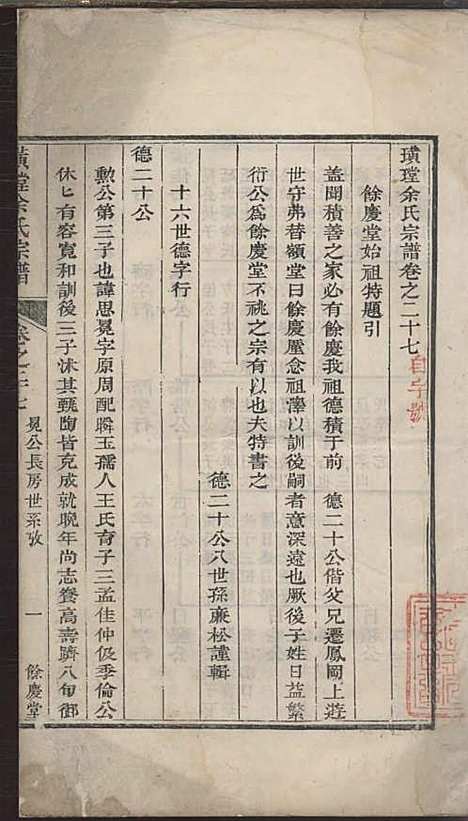 璜瑝余氏宗譜卷之二十七
自字號
餘慶堂始祖特題引
蓋聞積善之家必有餘慶我祖德積于前　德二十公偕父兄遷鳳岡上遊
世守弗替額堂曰餘慶壓念祖澤以訓後嗣者意深遠也厥後子姓日益繁
衍公爲餘慶堂不祧之宗有以也夫特書之
德二十公八世孫蓁松謹輯
十六世德字行
德二十公
勳公第三子也諱思晃字原周配瞬玉孺人王氏育子三孟佳仲伋季倫公
休匕有容寬和訓後三子沐其甄陶皆克成就晚年尚志養高壽躋八旬御
璜瑝余氏宗譜
卷之二十七
晃公長房世系攷
一
餘慶堂